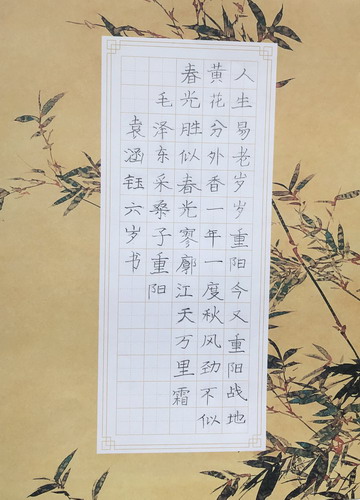 人生易老岁岁重阳今又重阳战地
黄花分外香一年一度秋风劲不似
春光胜似春光寥廓江天万里霜
毛泽东采桑子重阳
袁涵钰六岁书